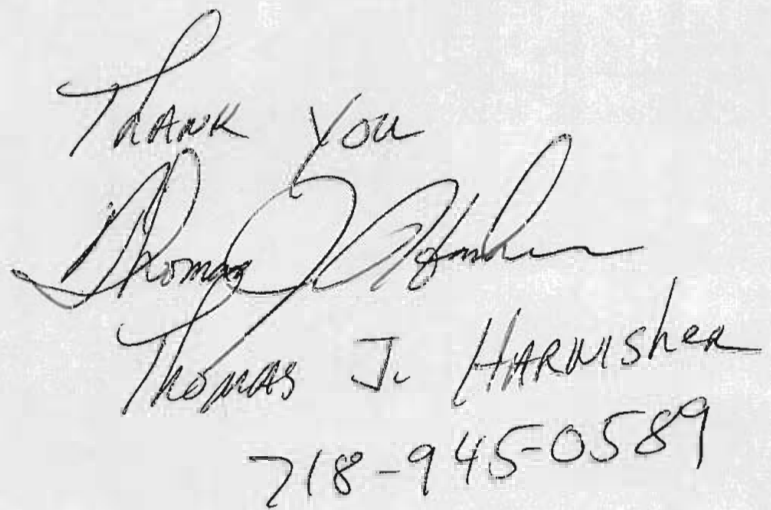 Thank You
Thomas J. Harnisher
Thomas J. HARNISHER
718-945-0589